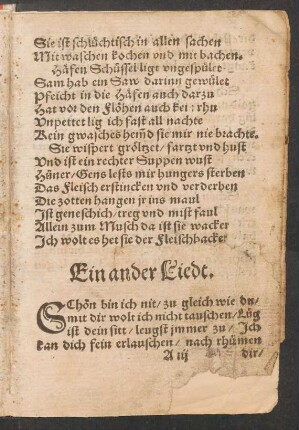 Sie ist schlüchtisch in allen sachen
Mit waschen kochen vnd mit bachen.
Häfen Schüssel ligt vngespület
Sam hab ein Saw darinn gewület
Pfeicht in die Häfen auch darzu
Hat vor den Flöhen auch kei: rhu
Vnpettet lig ich fast all nachte
Kein gwasches hend sie mir nie brachts.
Sie wispert gröltzet / fartzt vnd hust
Vnd ist ein rechter Suppen wust
Hüner / Gens lests mir hungers sterben
Das Fleisch erstincken vnd verderben
Die zotten hangen jr ins maul
Ist geneschich / treg vnd mist faul
Allein zum Musch da ist sie wacker
Ich wolt es het sie der Fleischhacker
Ein ander Liedt.
SChön bin ich nit / zu gleich wie du /
mit dir wolt ich nicht tauschen / Lüg
ist dein sitt / leugst jmmer zu / Ich
kan dich fein erlauschen / nach rhümen
A iij dir /